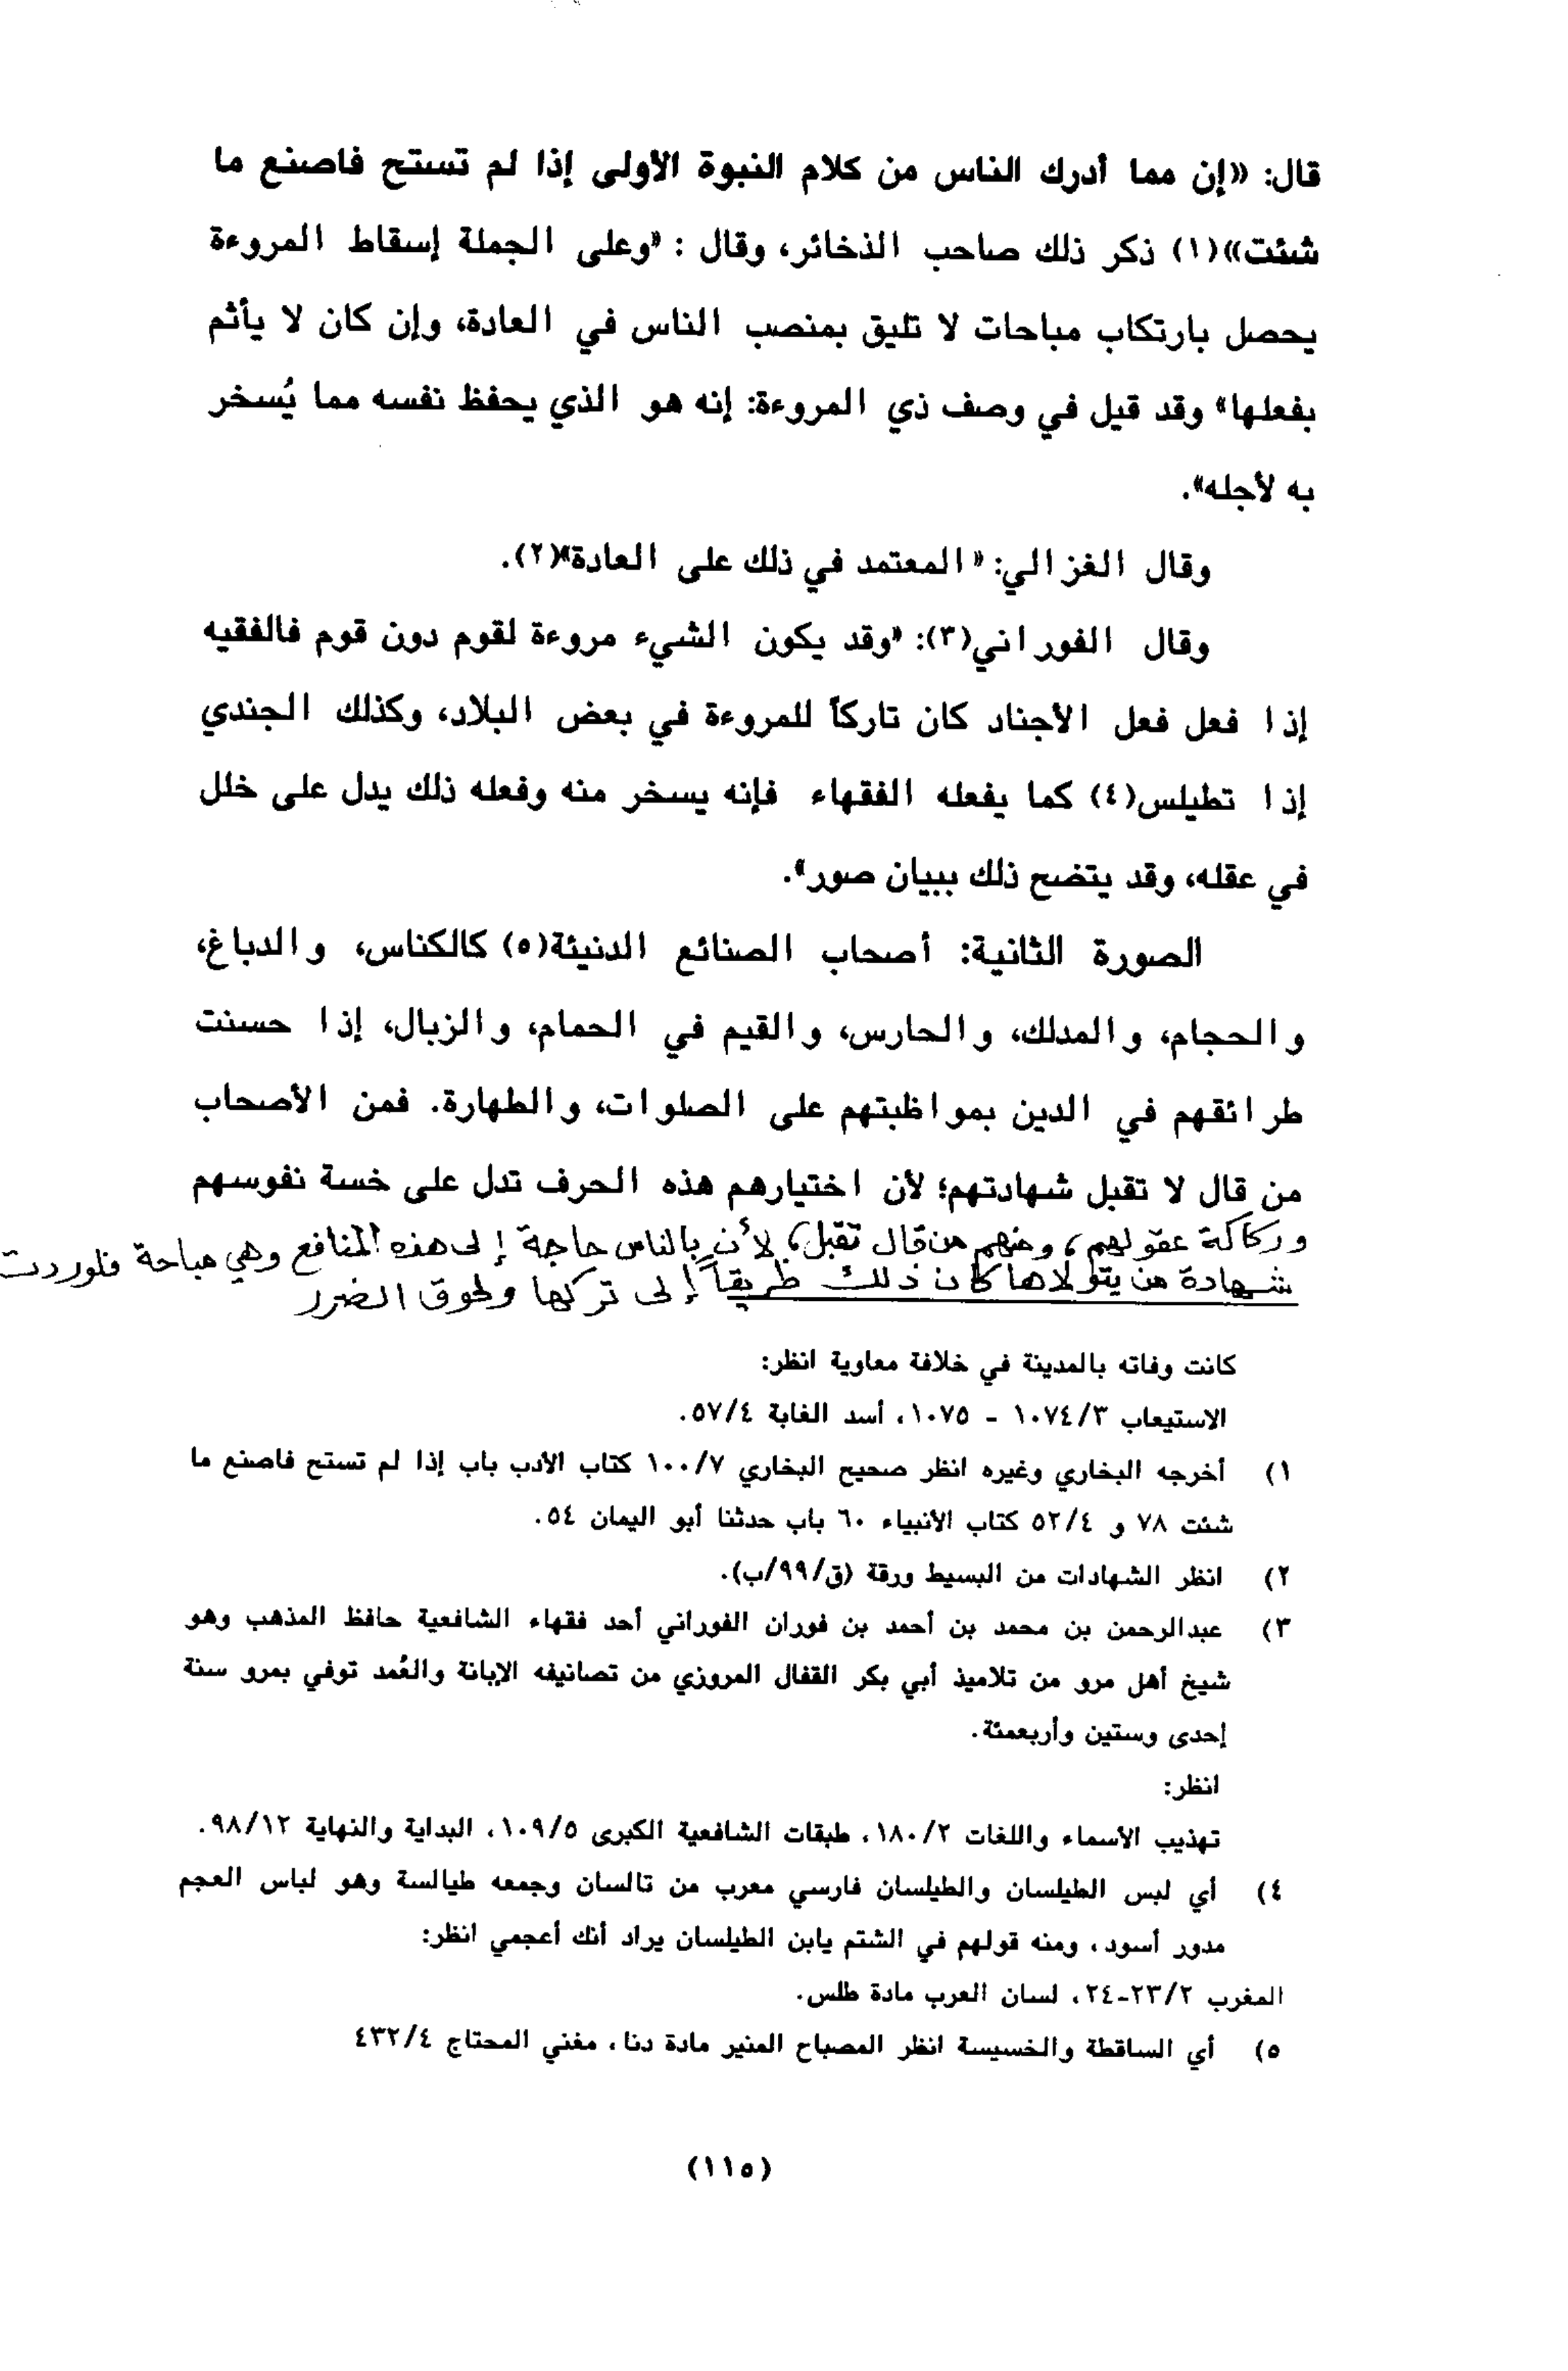 قال: «إن مما أدرك الناس من كلام النبوة الأولى إذا لم تستح فاصنع ما
شئت»(١) ذكر ذلك صاحب الذخائر، وقال : «وعلى الجملة إسقاط المروءة
يحصل بارتكاب مباحات لا تليق بمنصب الناس في العادة، وإن كان لا يأثم
بفعلها» وقد قيل في وصف ذي المروءة: إنه هو الذي يحفظ نفسه مما يُسخر
به لأجله».
وقال الغزالي: «المعتمد في ذلك على العادة»(٢).
وقال الفوراني(٣): «وقد يكون الشيء مروءة لقوم دون قوم فالفقيه
إذا فعل فعل الأجناد كان تاركاً للمروءة في بعض البلاد، وكذلك الجندي
إذا تطيلس(٤) كما يفعله الفقهاء فإنه يسخر منه وفعله ذلك يدل على خلل
في عقله، وقد يتضح ذلك ببيان صور».
الصورة الثانية: أصحاب الصنائع الدنيئة(٥) كالكناس، والدباغ،
والحجام، والمدلك، والحارس، والقيم في الحمام، والزبال، إذا حسنت
طرائقهم في الدين بمواظبتهم على الصلوات، والطهارة. فمن الأصحاب
من قال لا تقبل شهادتهم؛ لأن اختيارهم هذه الحرف تدل على خسة نفوسهم
وركاكة عقولهم، ومنهم من قال تقبل، لأن بالناس حاجة إلى هذه المنافع وهي مباحة فلو ردت
شهادة من يتولاها كان ذلك طريقاً إلى تركها ولحوق الضرر
كانت وفاته بالمدينة في خلافة معاوية انظر:
الاستيعاب ١٠٧٤/٣ - ١٠٧٥، أسد الغابة ٥٧/٤.
١) أخرجه البخاري وغيره انظر صحيح البخاري ١٠٠/٧ كتاب الأدب باب إذا لم تستح فاصنع ما
شئت ٧٨ و ٥٢/٤ كتاب الأنبياء ٦٠ باب حدثنا أبو اليمان ٥٤.
٢) انظر الشهادات من البسيط ورقة (ق/٩٩/ب).
٣) عبدالرحمن بن محمد بن أحمد بن فوران الفوراني أحد فقهاء الشافعية حافظ المذهب وهو
شيخ أهل مرو من تلاميذ أبي بكر القفال المروزي من تصانيفه الإبانة والعُمد توفي بمرو سنة
إحدى وستين وأربعمئة.
انظر:
تهذيب الأسماء واللغات ١٨٠/٢، طبقات الشافعية الكبرى ١٠٩/٥، البداية والنهاية ٩٨/١٢.
٤) أي لبس الطيلسان والطيلسان فارسي معرب من تالسان وجمعه طيالسة وهو لباس العجم
مدور أسود، ومنه قولهم في الشتم يابن الطيلسان يراد أنك أعجمي انظر:
المغرب ٢٣/٢-٢٤، لسان العرب مادة طلس.
٥) أي الساقطة والخسيسة انظر المصباح المنير مادة دنا، مغني المحتاج ٤٣٢/٤
(١١٥)